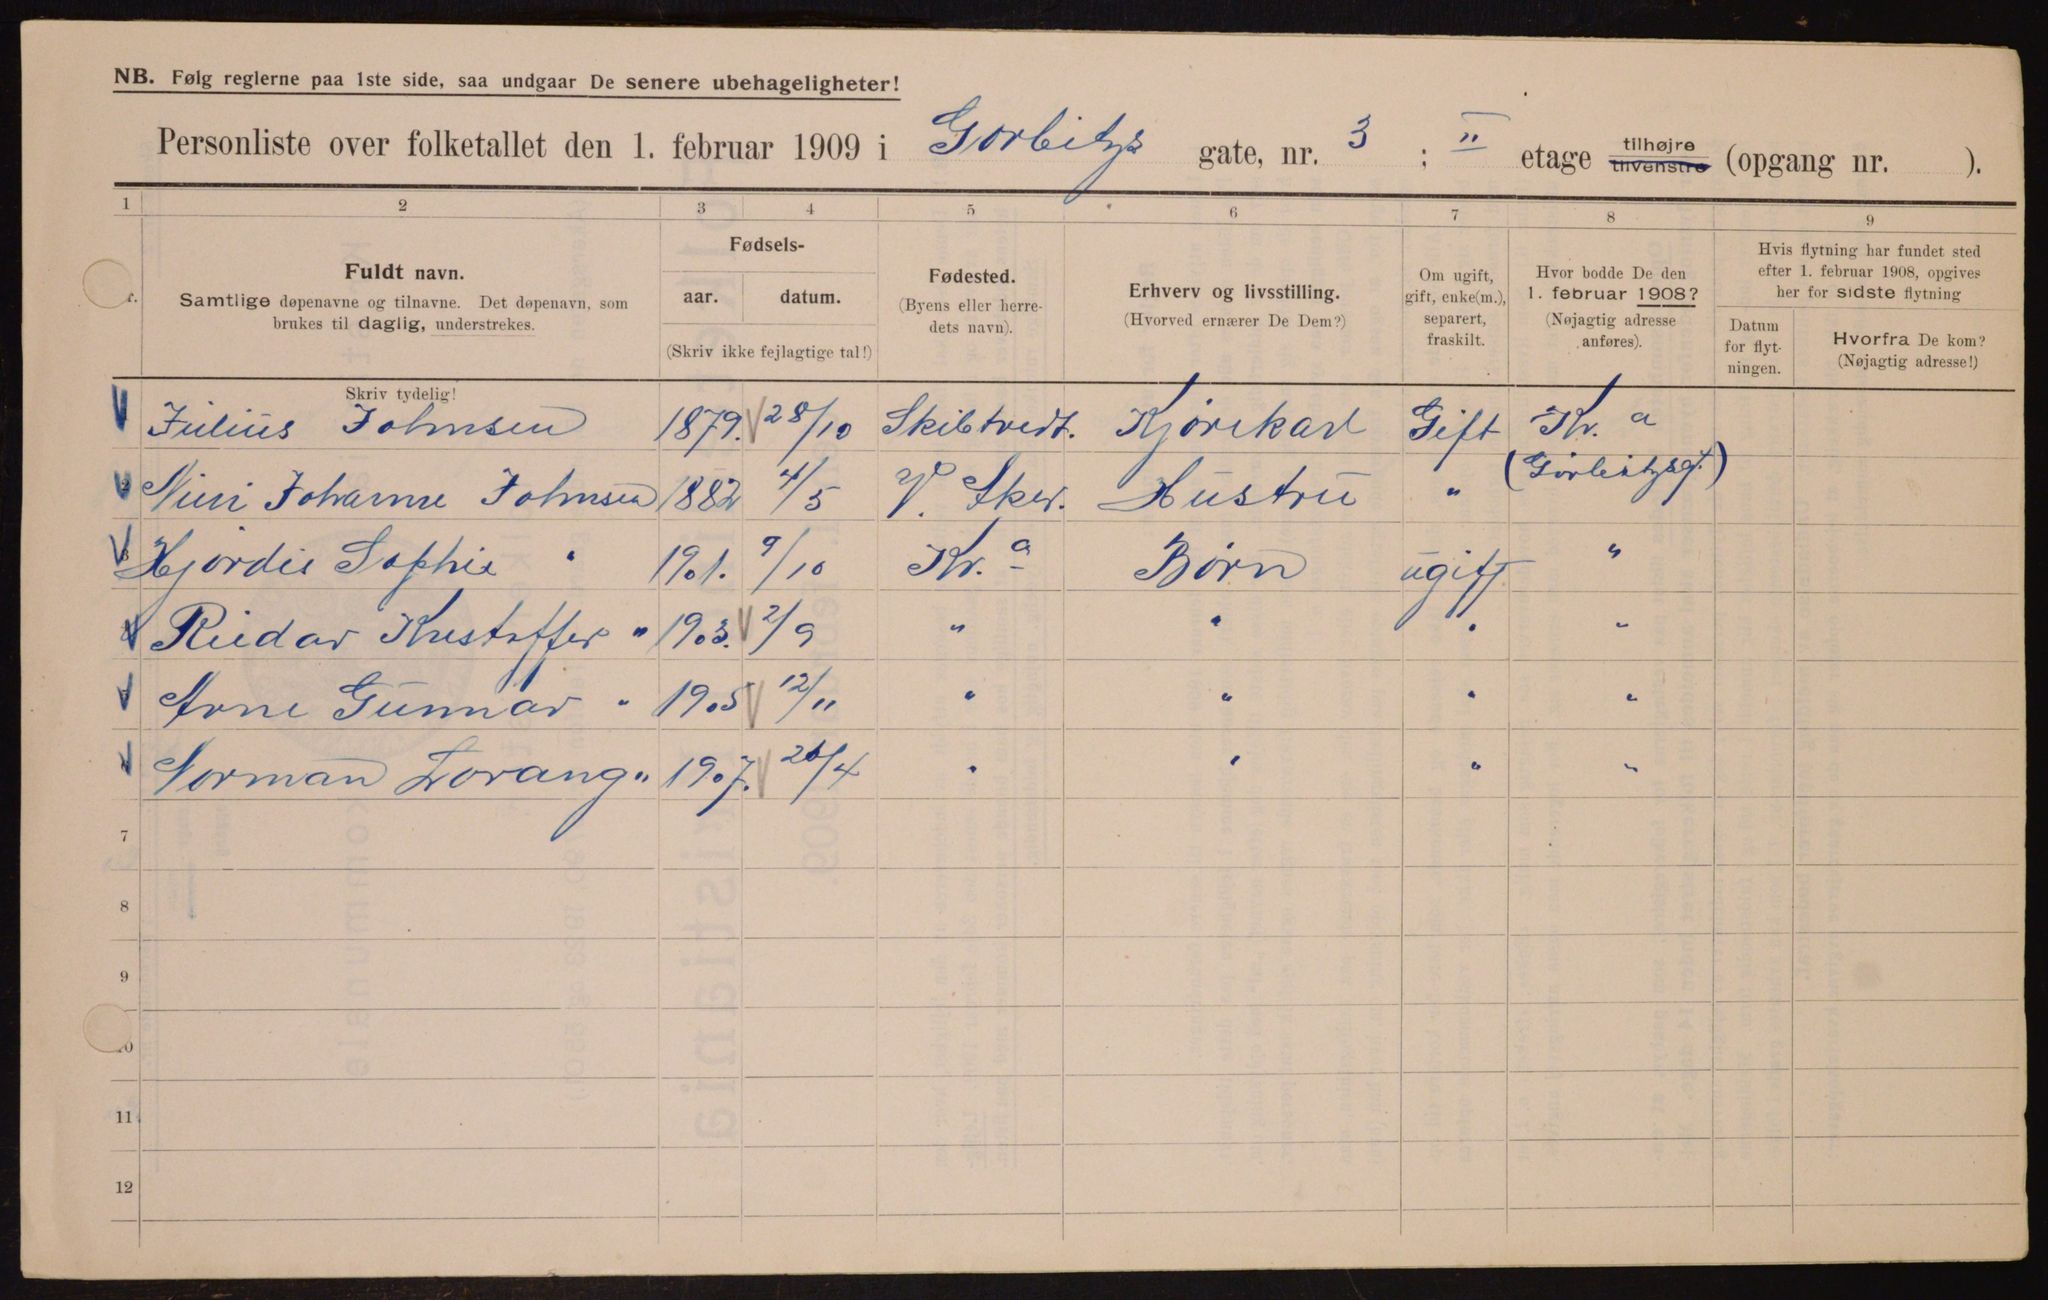 NB. Følg reglerne paa 1ste side, saa undgaar De senere ubehageligheter!
Personliste over folketallet den 1. februar 1909 i Gorbitys gate, nr. 3 ; II etage tilhøjre tilvenstre (opgang nr. ).
1 2 3 4 5 6 7 8 9
Fuldt navn.
Samtlige døpenavne og tilnavne. Det døpenavn, som
brukes til daglig, understrekes.
Fødsels-
aar. datum.
(Skriv ikke fejlagtige tal!)
Fødested.
(Byens eller herre-
dets navn).
Erhverv og livsstilling.
(Hvorved ernærer De Dem?)
Om ugift,
gift, enke(m.),
separert,
fraskilt.
Hvor bodde De den
1. februar 1908?
(Nøjagtig adresse
anføres).
Hvis flytning har fundet sted
efter 1. februar 1908, opgives
her for sidste flytning
Datum
for flyt-
ningen.
Hvorfra De kom?
(Nøjagtig adresse!)
Skriv tydelig!
Julius Johnsen 1879. 28/10 Skibtvedt. Kjørekarl Gift Kr. a
2 Nini Johanne Johnsen 1882 4/5 V. Aker. Hustru " (Gørbitysgt.)
3 Hjørdis Sophie " 1901. 9/10 Kr. a Børn ugift "
Reidar Kristoffer " 1903. 2/9 " " " "
5 Arne Gunnar " 1905 12/11 " " " "
Norman Lorang " 1907. 26/4 " " " "
7
8
9
10
11
12